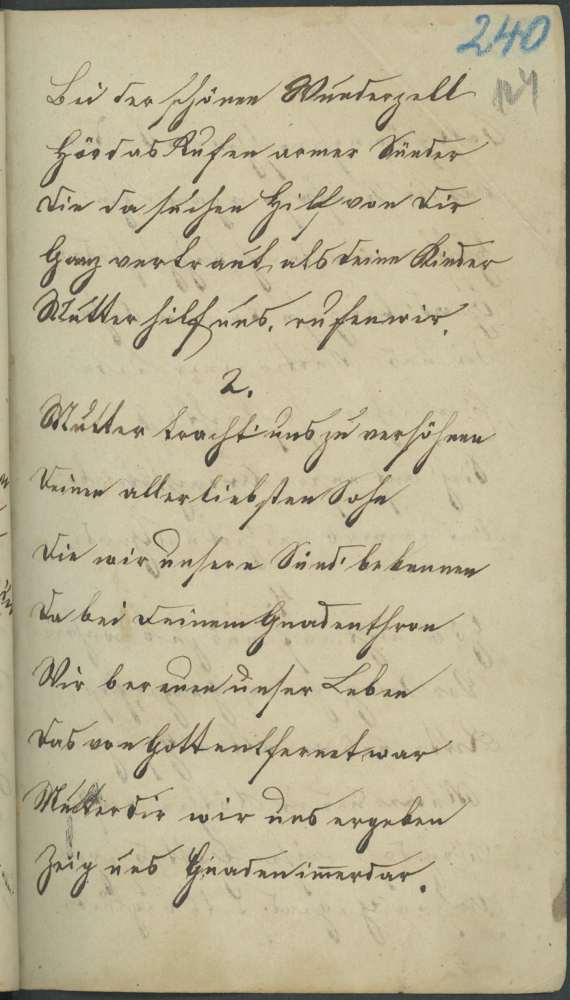 240
124
Bei der schönen Wunderzell
Hör das Rufen armer Sünder
Die da suchen Hilf von Dir
Ganz vertraut als deine Kinder
Mutter hilf uns, rufen wir.
2.
Mutter tracht uns zu versöhnen
Deinen allerliebsten Sohn
Die wir unsere Sünd' bekennen
Da bei Deinem Gnadenthron
Wir bereuen unser Leben
Das von Gott entfernet war
Mutter dir wir uns ergeben
Zeig uns Gnaden im̅erdar.